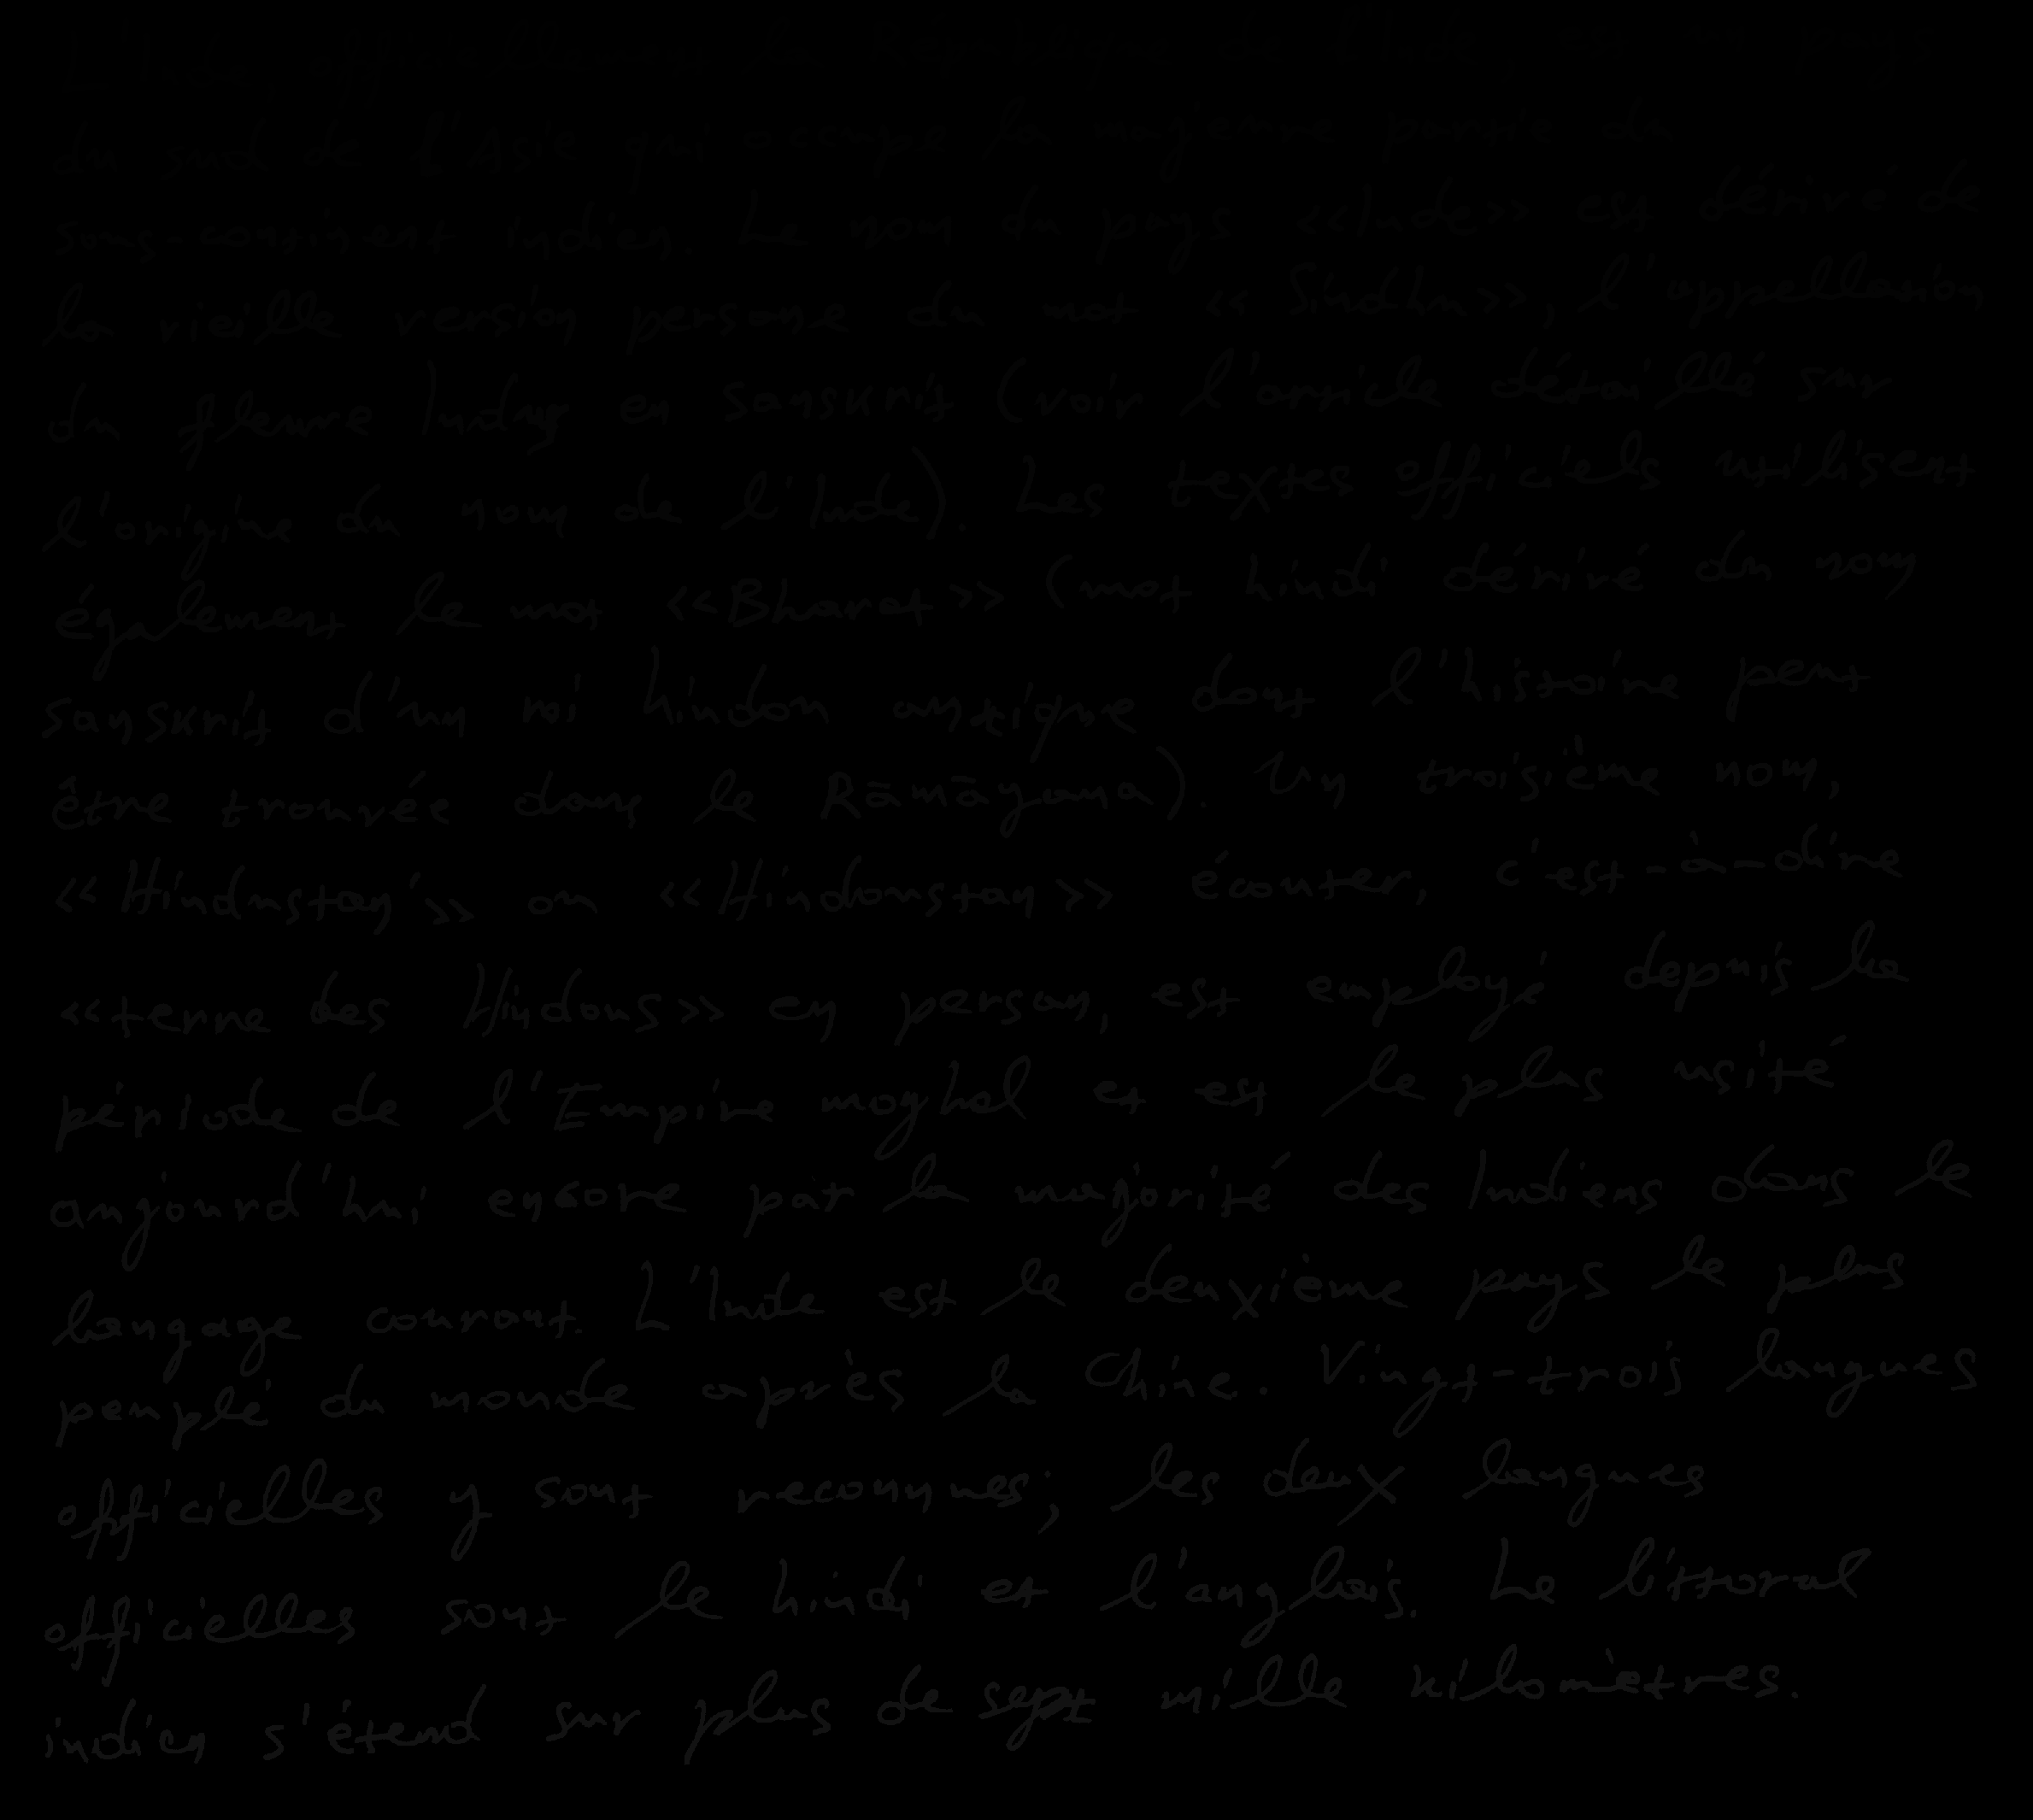 L'Inde, officiellement la République de l'Inde, est un pays
du sud de l'Asie qui occupe la majeure partie du
sous-continent indien. Le nom du pays <<Inde>> est dérivé de
la vieille version persane du mot << Sindhu>>, l'appellation
du fleuve Indus en sanskrit (voir l'article détaillé sur
l'origine du nom de l'Inde). Les textes officiels utilisent
également le mot <<Bharat>> (mot hindi dérivé du nom
sanskrit d'un roi hindou antique dont l'histoire peut
être trouvée dans le Rāmāyana). Un troisième nom,
<<Hindustan>> ou <<Hindoustan>> écouter, c'est-à-dire
<<terre des Hindous>> en persan, est employé depuis la
période de l'Empire moghol et est le plus usité
aujourd'hui encore par la majorité des Indiens dans le
langage courant. L'Inde est le deuxième pays le plus
peuplé du monde après la Chine. Vingt-trois langues
officielles y sont reconnues; les deux langues
officielles sont le hindi et l'anglais. Le littoral
indien s'étend sur plus de sept mille kilomètres.